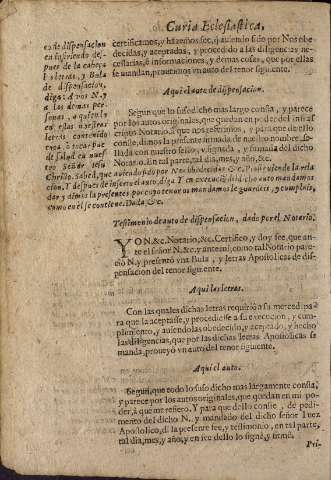 Curia Eclesiastica,
certificamos, y hazemos fee, q̃ auiendo sido por Nos obe-
decidas, y aceptadas, y procedido a las diligencias ne-
cessarias, è informaciones, y demas cosas, que por ellas
se mandan, proueimos vn auto del tenor siguiente.
Aqui el auto de dispensacion.
Segun que lo susodicho mas largo consta, y parece
por los autos originales, que quedan en poder del
Notario, à que nos referimos, y para que de ello
conste, dimos la presente firmada de nuestro nombre, se-
llada con nuestro sello, y firmada del dicho
Notario. En tal parte, tal dia, mes, y año, &c.
Testimonio de auto de dispensacion, dado por el Notario.
YO N. &c. Notario, &c. Certifico, y doy fee, que an-
te el señor N. &c. y ante mi, como tal Notario pare-
ciò N. y presentò vna Bula, y letras Apostolicas de dis-
pensacion del tenor siguiente.
Aqui las letras.
Con las quales dichas letras requirio a su merced pa-
ra que la aceptasse, y procediesse a su execucion, y cum-
plimiento, y auiendolas obedecido, y aceptado, y hecho
las diligencias, que por las dichas letras Apostolicas se
manda, proueyò vn auto del tenor siguiente.
Aqui el auto.
Segun, que todo lo suso dicho mas largamente consta,
y parece por los autos originales, que quedan en mi po-
der, à que me refiero. Y para que dello conste, de pedi-
mento del dicho N. y mandado del dicho señor Iuez
Apostolico, dì la presente fee, y testimonio, en tal parte,
tal dia, mes, y año, y en fee dello lo signè, y firmè.
Pri-
cion de dispensacion
en insiriendo des-
pues de la cabeça
letras, y Bula
de dispensacion,
diga: A vos N. y
a las demas per-
sonas, a quien lo
en estas nuestras
letras contenido
toca, ò tocar pue-
de salud en nues-
tro Señor Iesu
Christo. Sabed, que auiendo sido por Nos obedecidas &c. Prosiguiendo la rela-
cion, Y despues de inserto el auto, diga. Y en execucion del dicho auto mandamos
dar y dimos la presente, por cuyo tenor os mandamos le guardeis, y cumplais,
como en el se contiene. Dada &c.